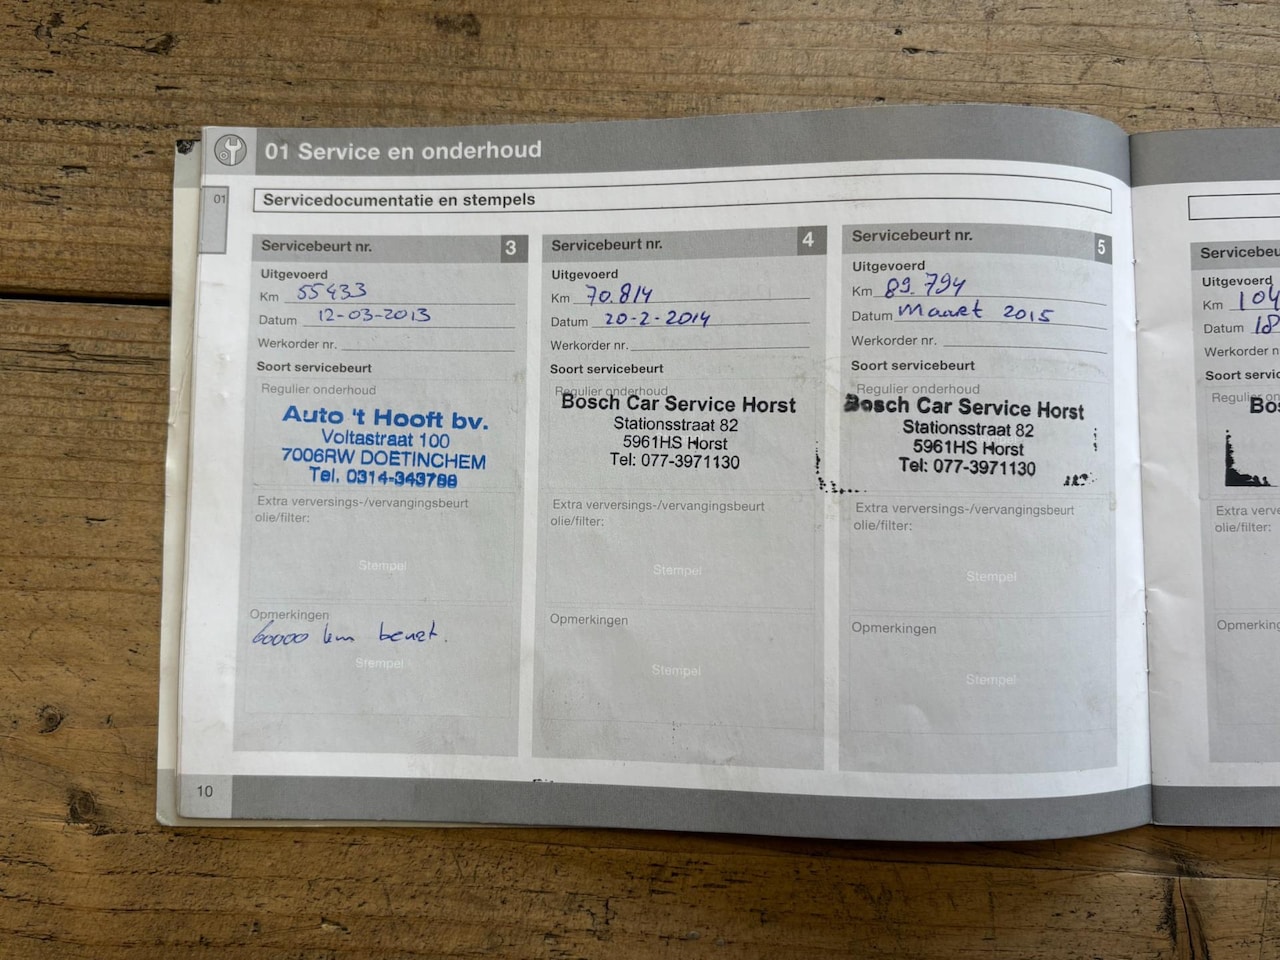 01 Service en onderhoud
01
Servicedocumentatie en stempels
Servicebeurt nr. 3
Uitgevoerd
Km 55433
Datum 12-03-2013
Werkorder nr.
Soort servicebeurt
Regulier onderhoud
Auto 't Hooft bv.
Voltastraat 100
7006RW DOETINCHEM
Tel. 0314-343788
Extra verversings-/vervangingsbeurt
olie/filter:
Stempel
Opmerkingen
60000 km beurt.
Stempel
Servicebeurt nr. 4
Uitgevoerd
Km 70.814
Datum 20-2-2014
Werkorder nr.
Soort servicebeurt
Regulier onderhoud
Bosch Car Service Horst
Stationsstraat 82
5961HS Horst
Tel: 077-3971130
Extra verversings-/vervangingsbeurt
olie/filter:
Stempel
Opmerkingen
Stempel
Servicebeurt nr. 5
Uitgevoerd
Km 89.794
Datum Maart 2015
Werkorder nr.
Soort servicebeurt
Regulier onderhoud
Bosch Car Service Horst
Stationsstraat 82
5961HS Horst
Tel: 077-3971130
Extra verversings-/vervangingsbeurt
olie/filter:
Stempel
Opmerkingen
Stempel
10
Servicebeu
Uitgevoerd
Km 104
Datum 18
Werkorder n
Soort servic
Regulier on
Bos
Extra verve
olie/filter:
Opmerking